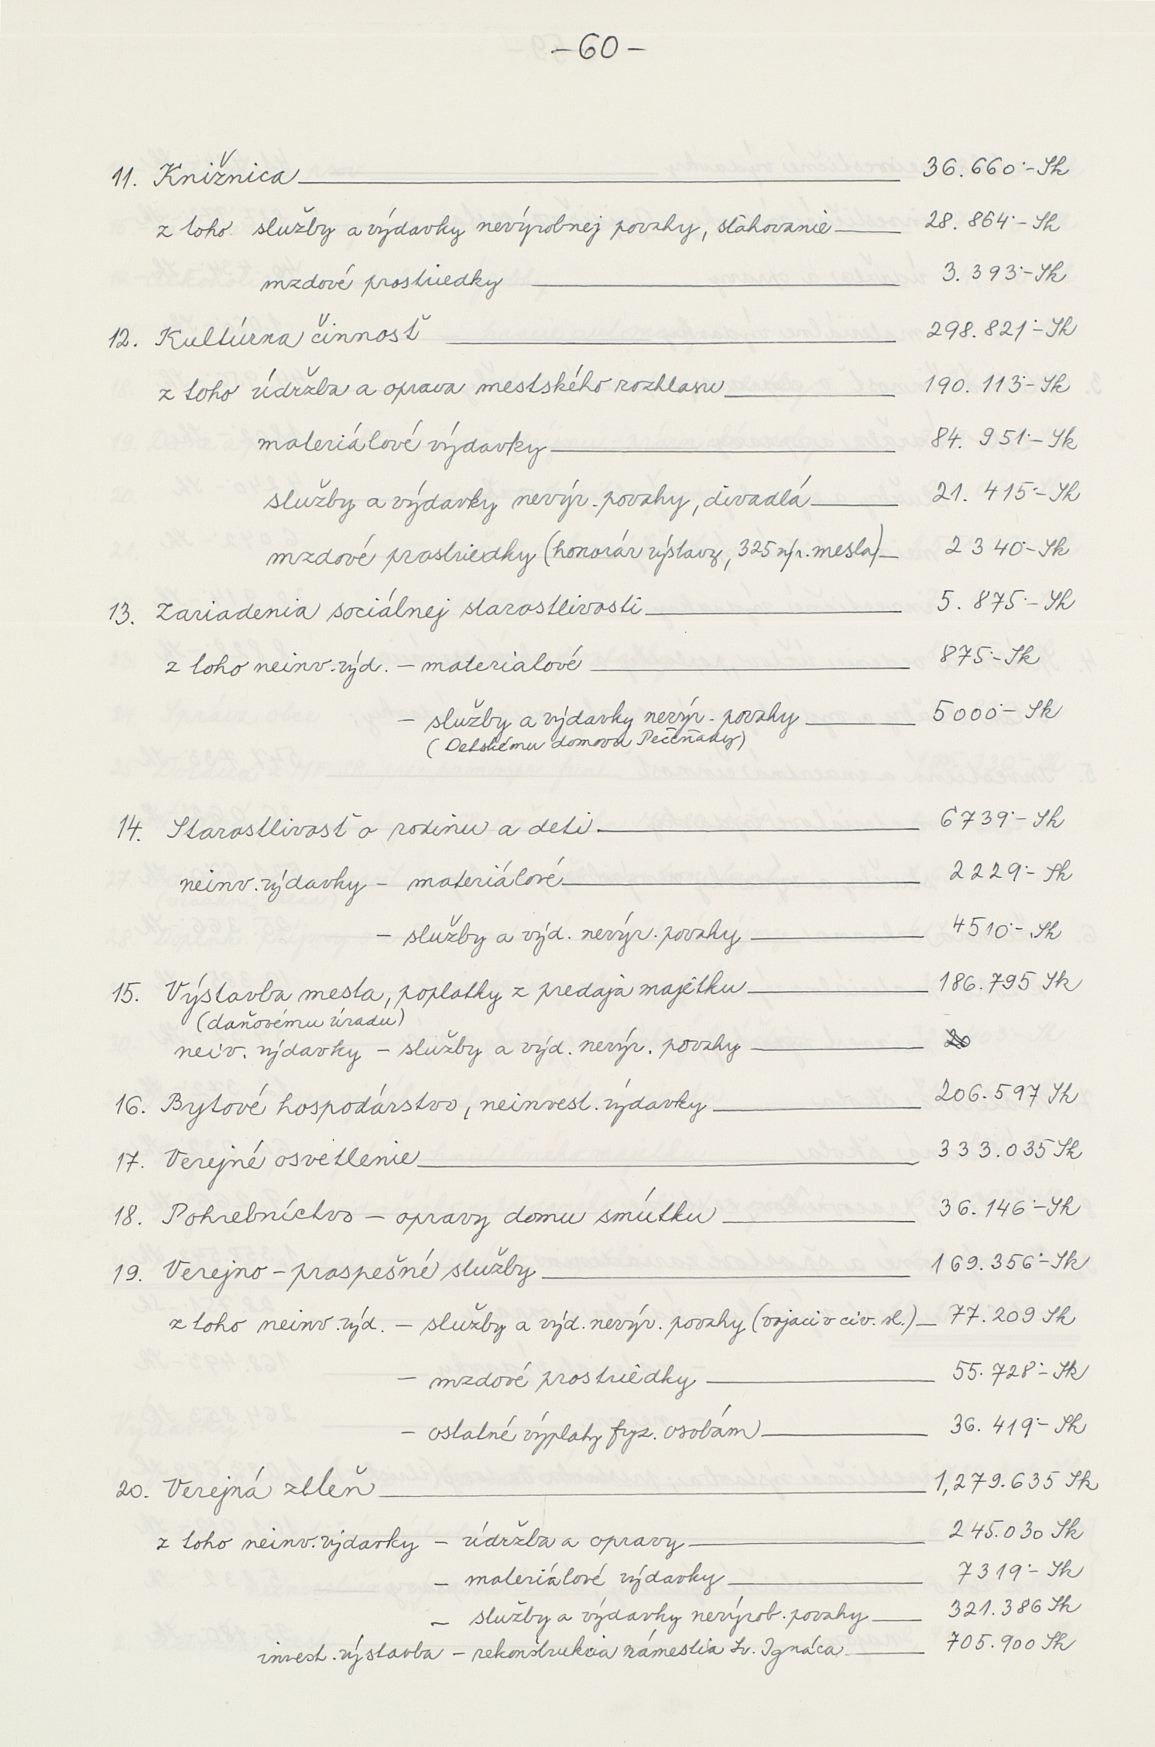 -60-
11. Knižnica 36.660.-Sk
z toho služby a výdavky nevýrobnej povahy, sťahovanie 28.864.-Sk
mzdové prostriedky 3.393.-Sk
12. Kultúrna činnosť 298.821.-Sk
z toho údržba a oprava mestského rozhlasu 190.113.-Sk
materiálové výdavky 84.951.-Sk
služby a výdavky nevýr. povahy, divadlá 21.415.-Sk
mzdové prostriedky (honorár výstavy, 325 výr. mesta) 2340.-Sk
13. Zariadenia sociálnej starostlivosti 5.875.-Sk
z toho neinv. výd. - materialové 875.-Sk
- služby a výdavky nevýr. povahy 5000.-Sk
(Detskému domovu Pečeňady)
14. Starostlivosť o rodinu a deti 6739.-Sk
neinv. výdavky - materiálové 2229.-Sk
- služby a výd. nevýr. povahy 4510.-Sk
15. Výstavba mesta, poplatky z predaja majetku 186.795 Sk
(daňovému úradu)
neiv. výdavky - služby a výd. nevýr. povahy
16. Bytové hospodárstvo, neinvest. výdavky 206.597 Sk
17. Verejné osvetlenie 333.035 Sk
18. Pohrebníctvo - opravy domu smútku 36.146.-Sk
19. Verejno-prospešné služby 169.356.-Sk
z toho neinv. výd. - služby a výd. nevýr. povahy (vojaci v civ. sl.) 77.209 Sk
- mzdové prostriedky 55.728.-Sk
- ostatné výplaty fyz. osobám 36.419.-Sk
20. Verejná zeleň 1,279.635 Sk
z toho neinv. výdavky - údržba a opravy 245.030 Sk
- materiálové výdavky 7319.-Sk
- služby a výdavky nevýrob. povahy 321.386 Sk
invest. výstavba - rekonštrukcia námestia Sv. Ignáca 705.900 Sk